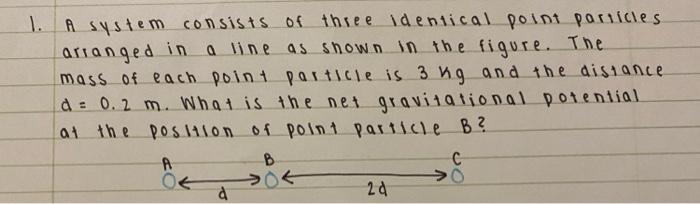 1. A system consists of three identical point particles
arranged in a line as shown in the figure. The
mass of each point particle is 3 kg and the distance
d = 0.2 m. What is the net gravitational potential
at the position of point particle B?
A B C
d 2d